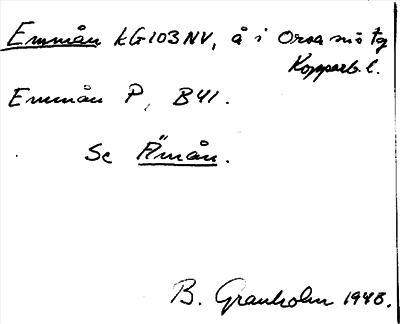 Emmån kG103NV, å i Orsa snö tg
Kopparb. l.
Emmån P, B41.
Se Ämån.
B. Granholm 1948.